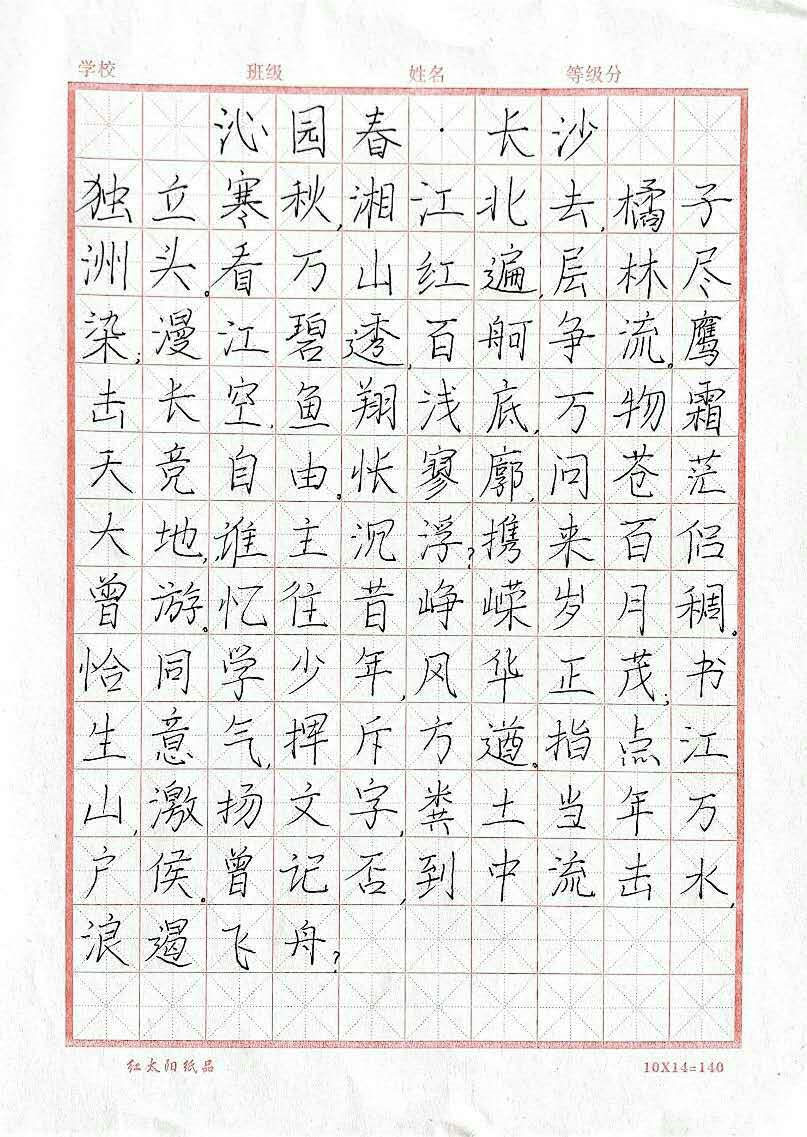 学校 班级 姓名 等级分
沁园春·长沙
独立寒秋,湘江北去,橘子
洲头。看万山红遍,层林尽
染;漫江碧透,百舸争流。鹰
击长空,鱼翔浅底,万物霜
天竞自由。怅寥廓,问苍茫
大地,谁主沉浮?携来百侣
曾游。忆往昔峥嵘岁月稠。
恰同学少年,风华正茂;书
生意气,挥斥方遒。指点江
山,激扬文字,粪土当年万
户侯。曾记否,到中流击水,
浪遏飞舟?
红太阳纸品 10X14=140